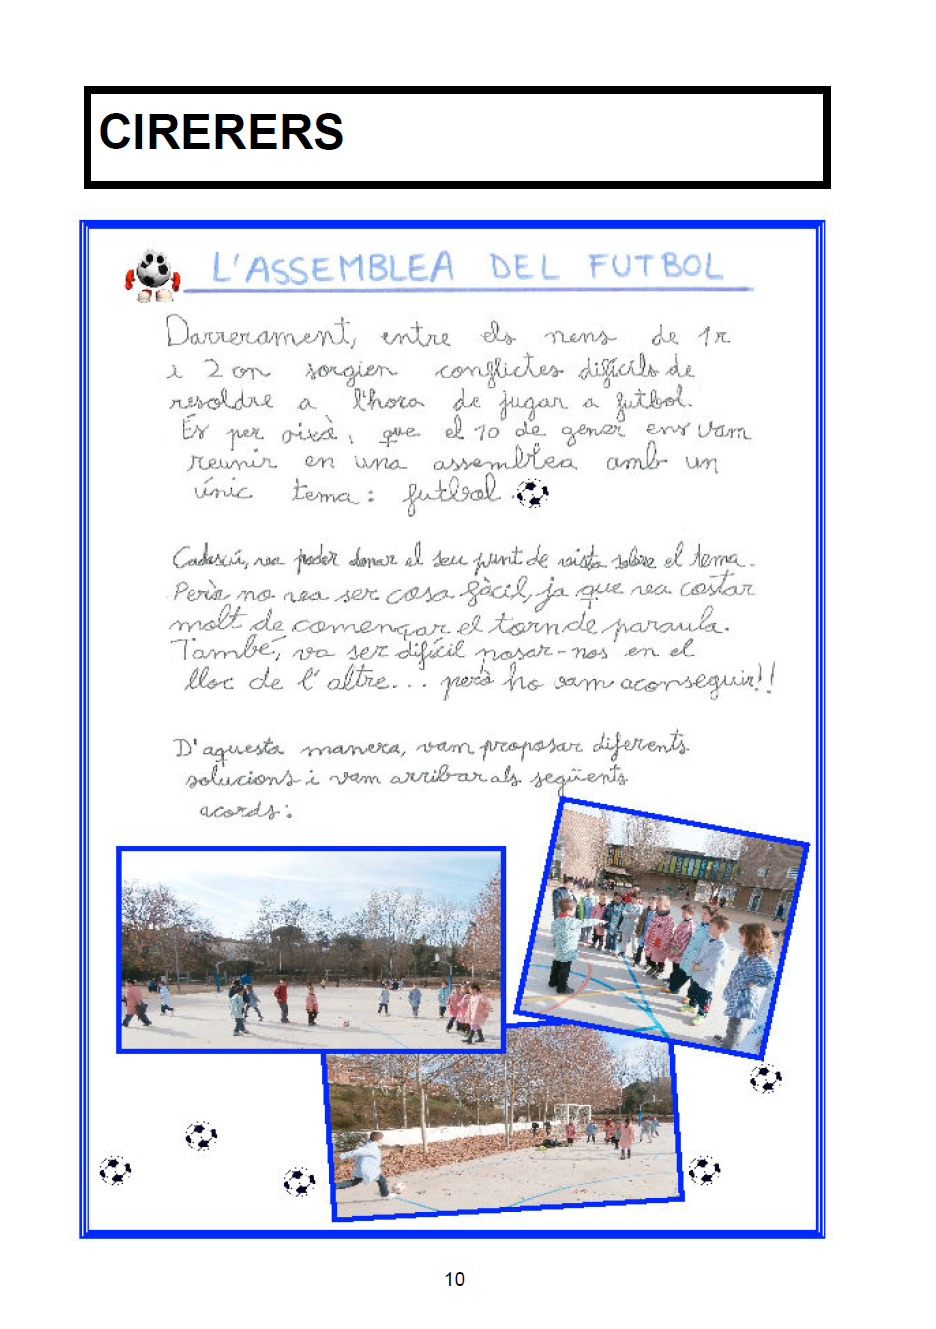 CIRERERS
L'ASSEMBLEA DEL FUTBOL
Darrerament, entre els nens de 1r
i 2on sorgien conflictes difícils de
resoldre a l'hora de jugar a futbol.
És per això, que el 10 de gener ens vam
reunir en una assemblea amb un
únic tema: futbol.
Cadascú, va poder donar el seu punt de vista sobre el tema.
Però no va ser cosa fàcil, ja que va costar
molt de començar el torn de paraula.
També, va ser difícil posar-nos en el
lloc de l'altre... però ho vam aconseguir!!
D'aquesta manera, vam proposar diferents
solucions i vam arribar als següents
acords:
10